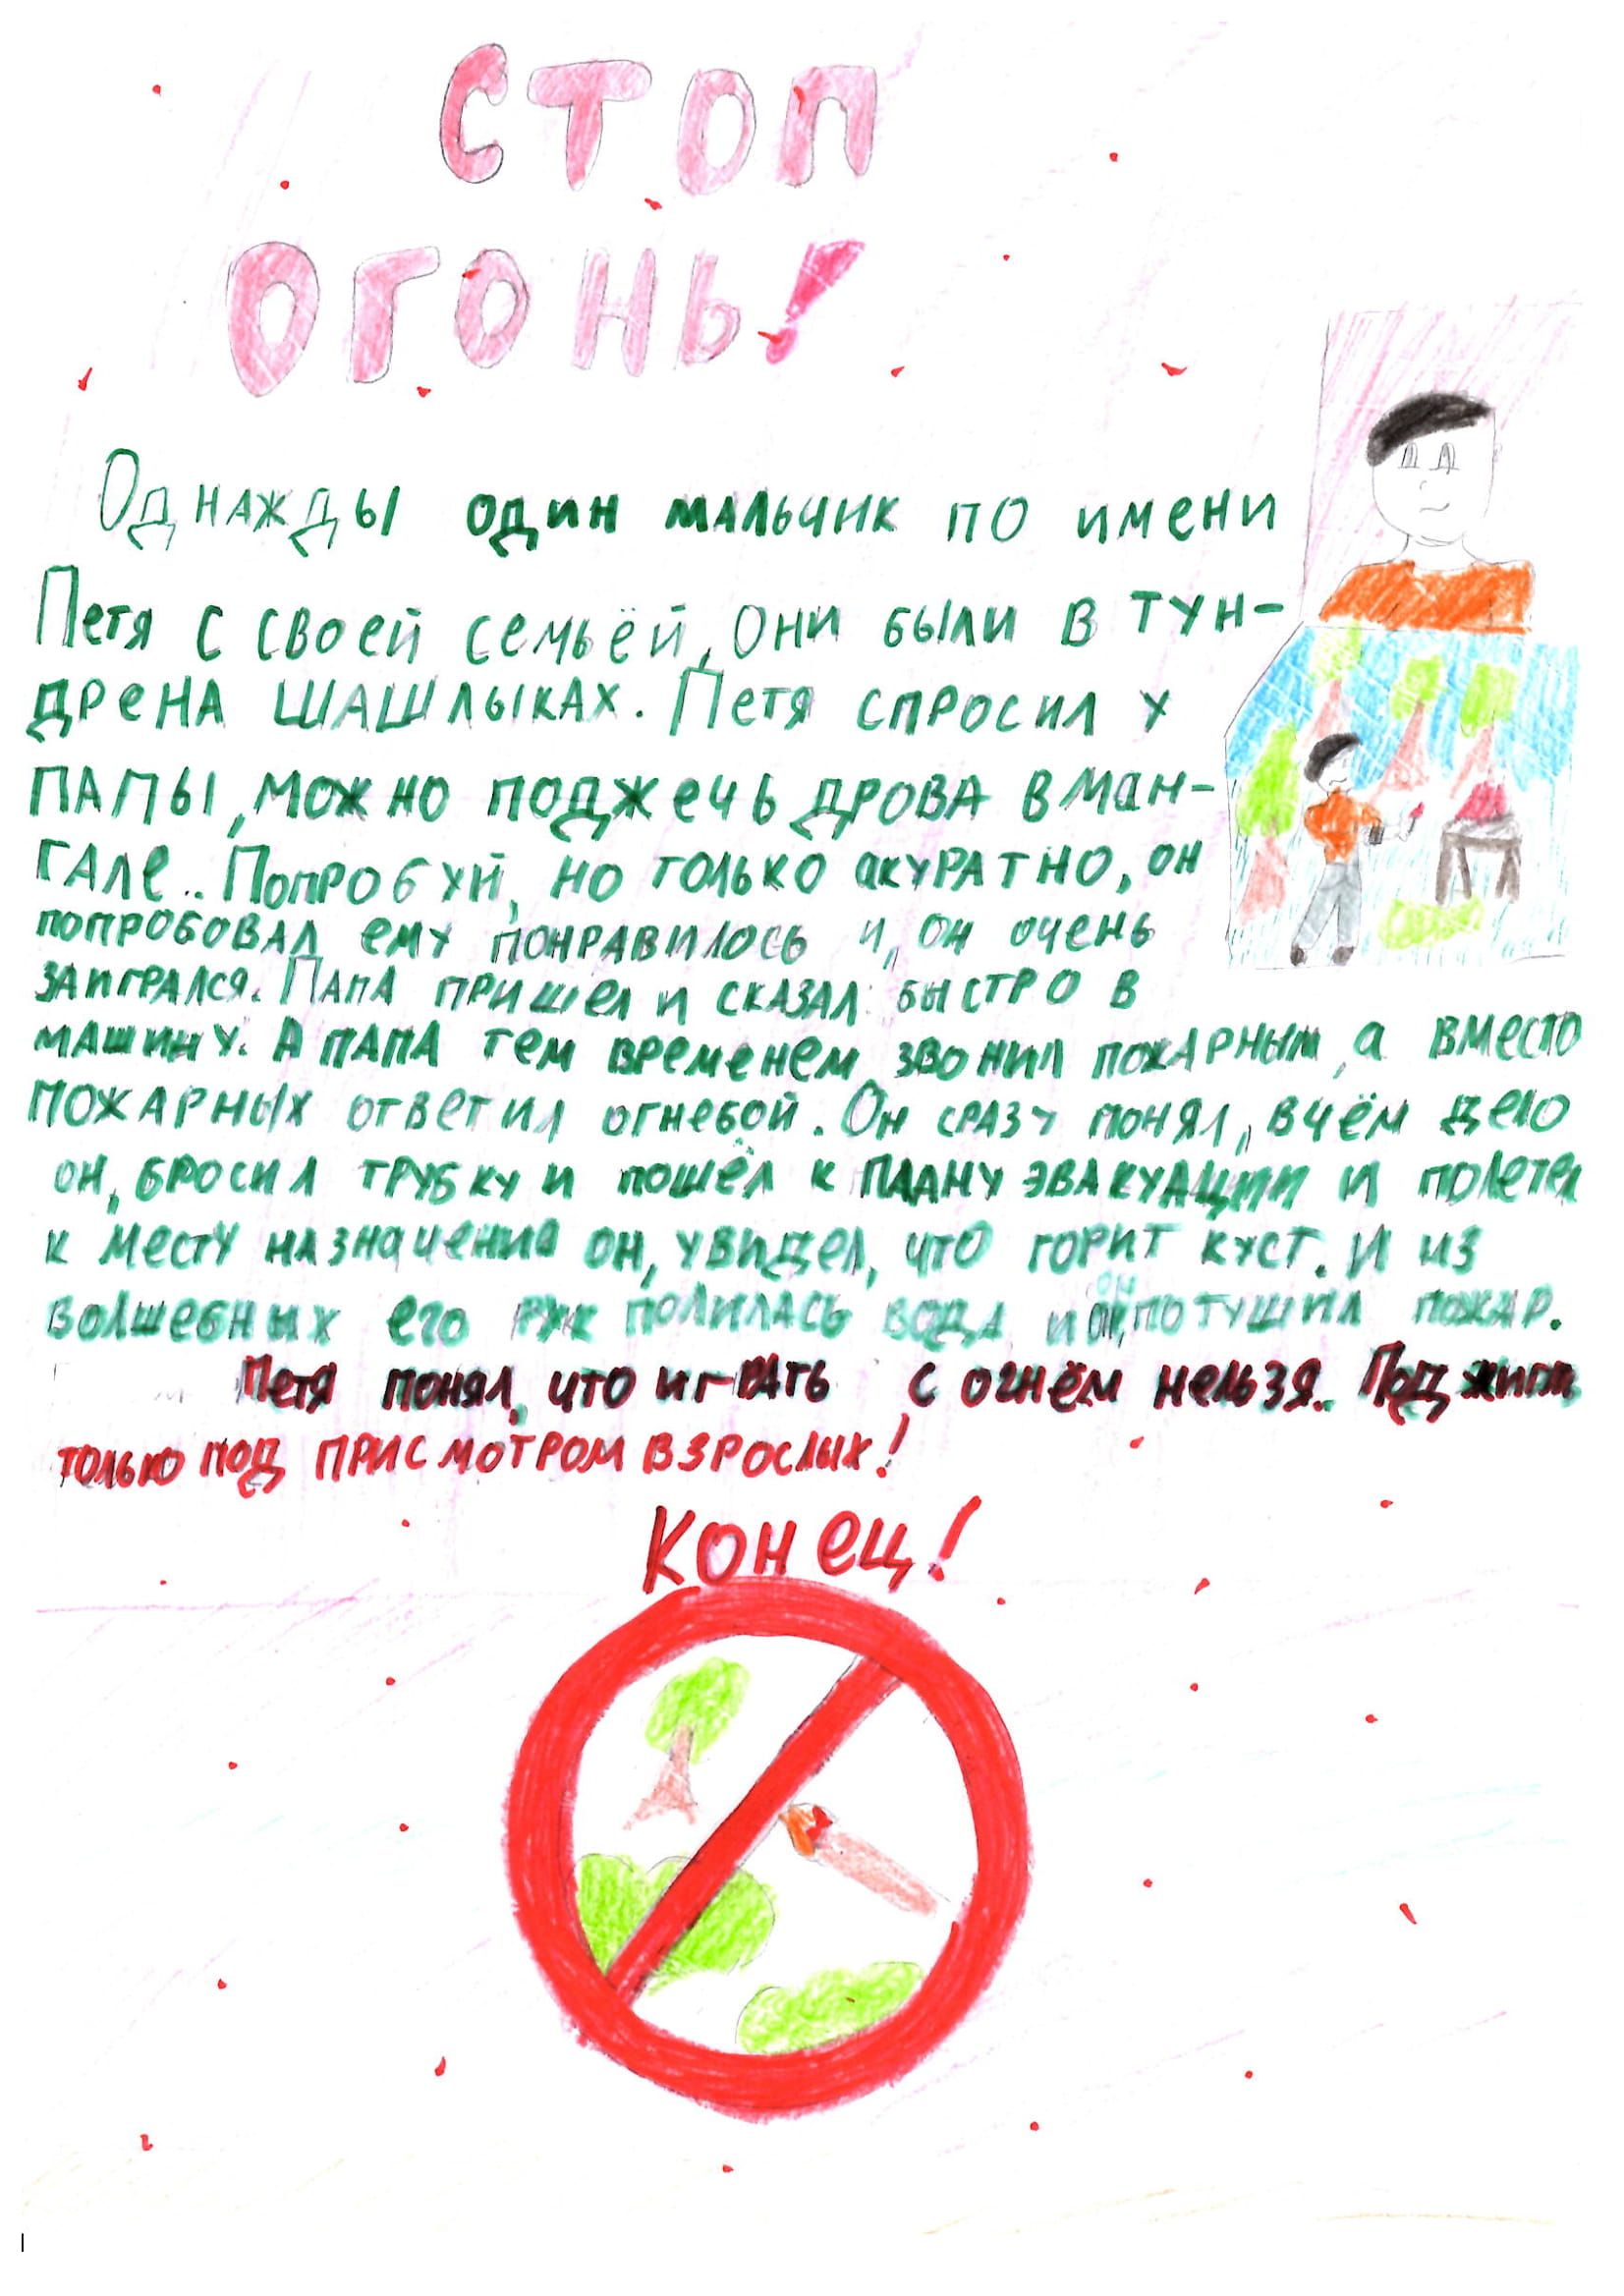 СТОП
ОГОНЬ!
Однажды один мальчик по имени
Петя с своей семьёй, они были в тун-
дрена шашлыках. Петя спросил у
папы, можно поджечь дрова в ман-
гале.. Попробуй, но только акуратно, он
попробовал ему понравилось и, он очень
заигрался. Папа пришел и сказал: быстро в
машину. А папа тем временем звонил пожарным, а вместо
пожарных ответил огнебой. Он сразу понял, в чём дело
он, бросил трубку и пошёл к плану эвакуации и полетел
к месту назначения он, увидел, что горит куст. И из
волшебных его рук полилась вода и он, потушил пожар.
Петя понял, что играть с огнём нельзя..
только под присмотром взрослых!
Конец!